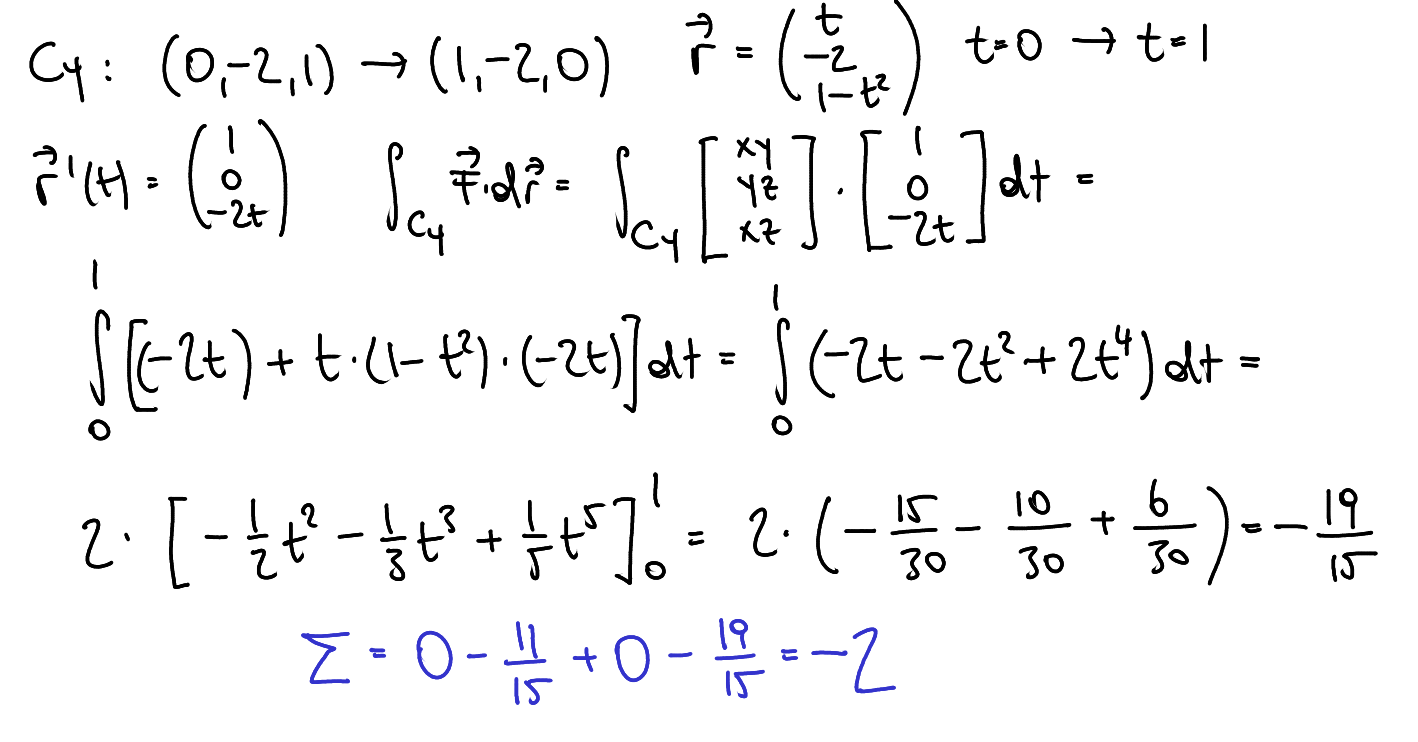 C₄: (0,-2,1) → (1,-2,0) r⃗ = (t -2 1-t²) t=0 → t=1
r⃗'(t) = (1 0 -2t) ∫_C₄ F⃗·dr⃗ = ∫_C₄ [xy yz xz] · [1 0 -2t] dt =
∫₀¹ [(-2t) + t·(1-t²)·(-2t)] dt = ∫₀¹ (-2t - 2t² + 2t⁴) dt =
2· [-1/2 t² - 1/3 t³ + 1/5 t⁵]₀¹ = 2·(-15/30 - 10/30 + 6/30) = -19/15
Σ = 0 - 11/15 + 0 - 19/15 = -2